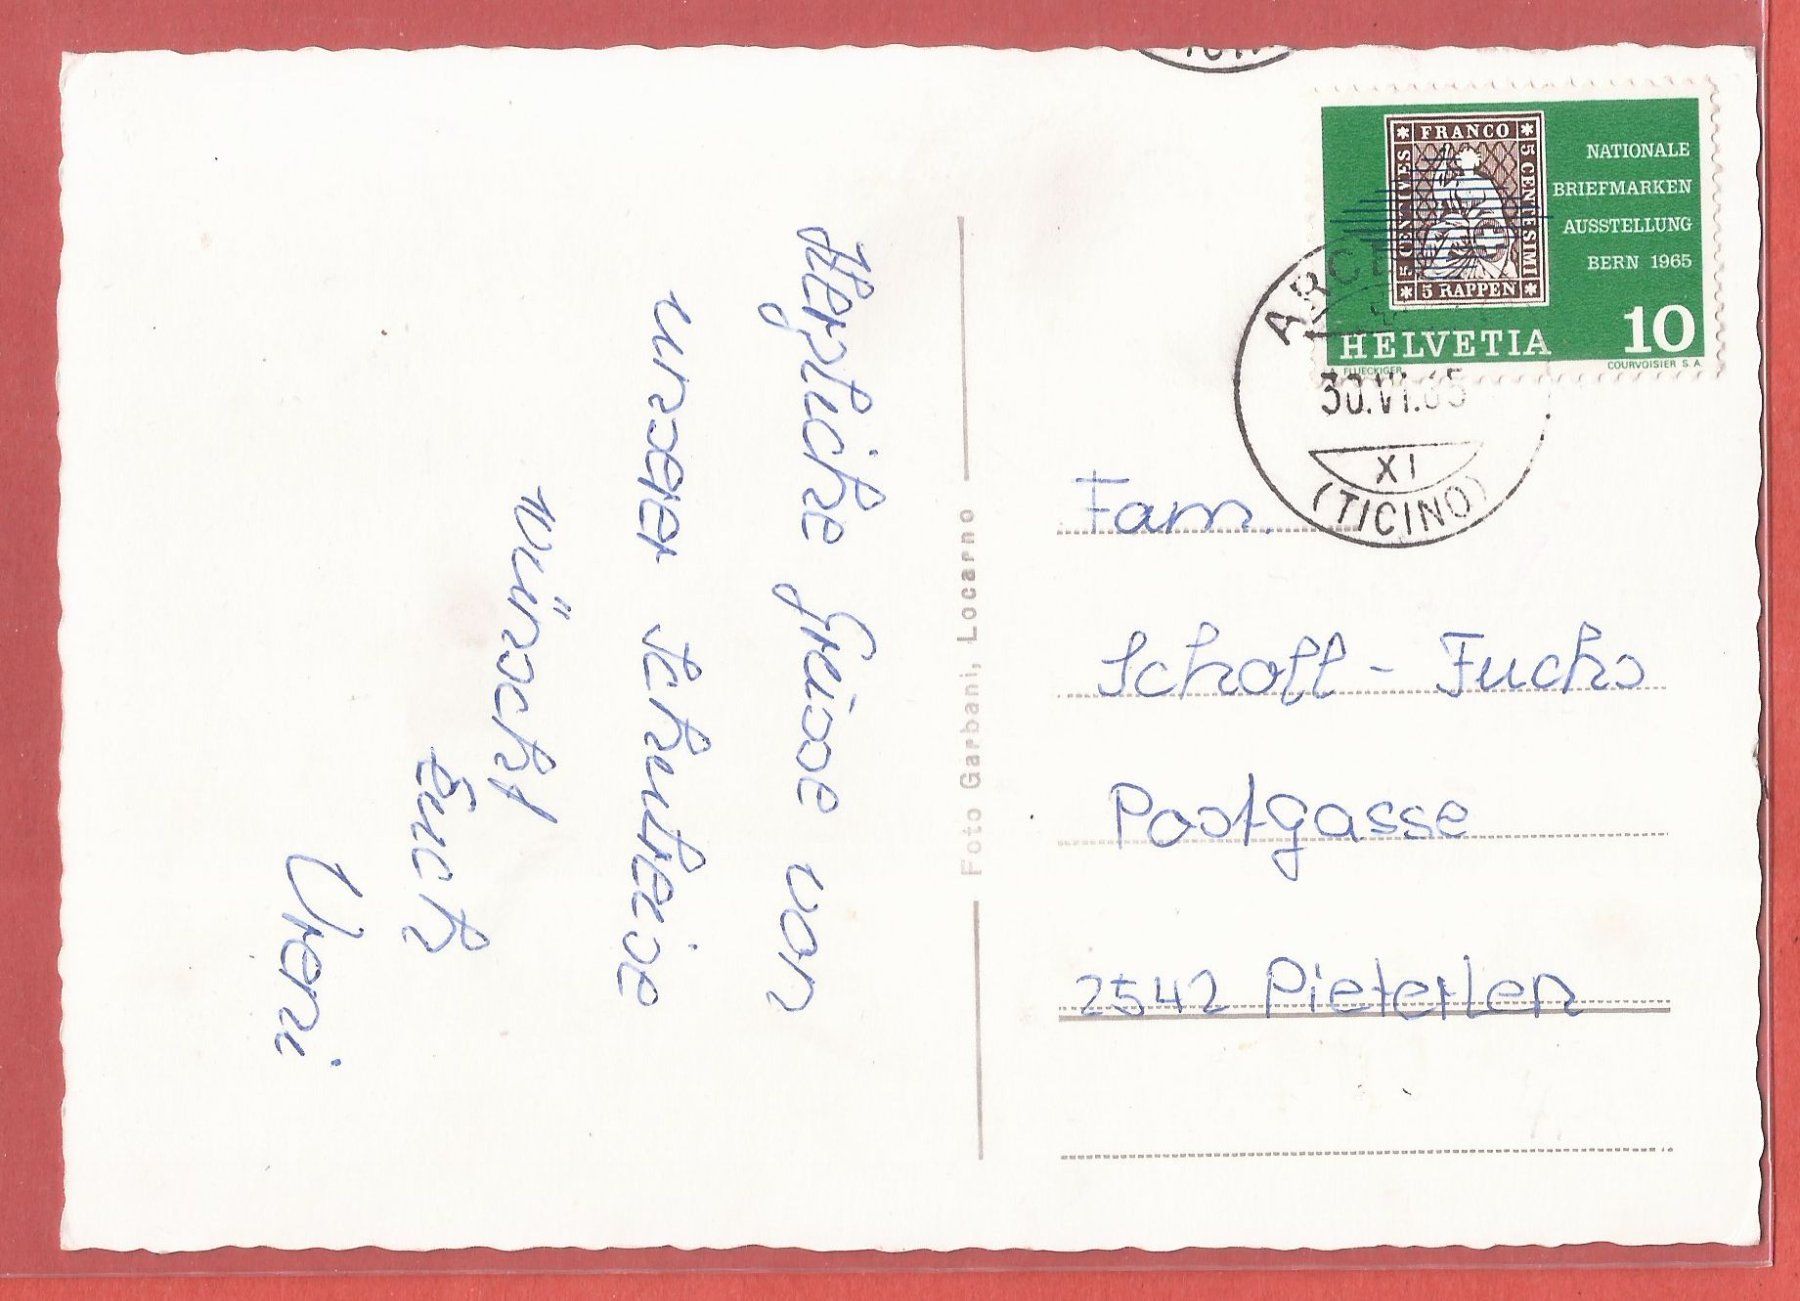 Herzliche Grüsse von
unserer Schulreise
wünscht
Euch
Vreni
Foto Garbani, Locarno
FRANCO
5 CENTIMES
5 CENTESIMI
5 RAPPEN
NATIONALE
BRIEFMARKEN
AUSSTELLUNG
BERN 1965
HELVETIA 10
FLUECKIGER
COURVOISIER S.A.
30.VI.65
XI
(TICINO)
Fam.
Scholl - Fuchs
Postgasse
2542 Pieterlen